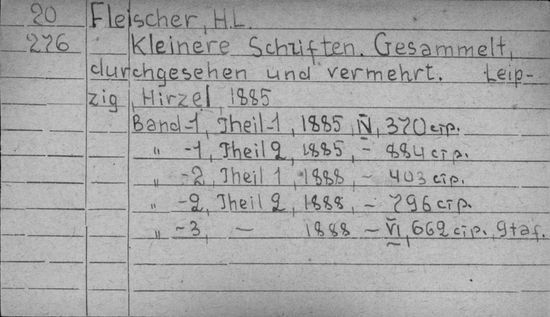 20 Fleischer, H.L.
276 Kleinere Schriften. Gesammelt,
durchgesehen und vermehrt. Leip-
zig, Hirzel, 1885
Band-1, Theil-1, 1885, IV, 370 стр.
„ -1, Theil 2, 1885, - 884 стр.
„ -2, Theil 1, 1888, - 403 стр.
„ -2, Theil 2, 1888, - 796 стр.
„ -3, - 1888 - VI, 662 стр., 9 таб.